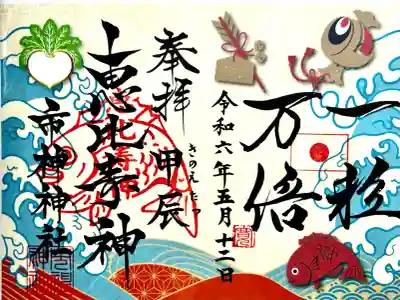 一粒
万倍
令和六年五月十二日
奉拝 甲辰
きのえたつ
恵比寿神
市神神社